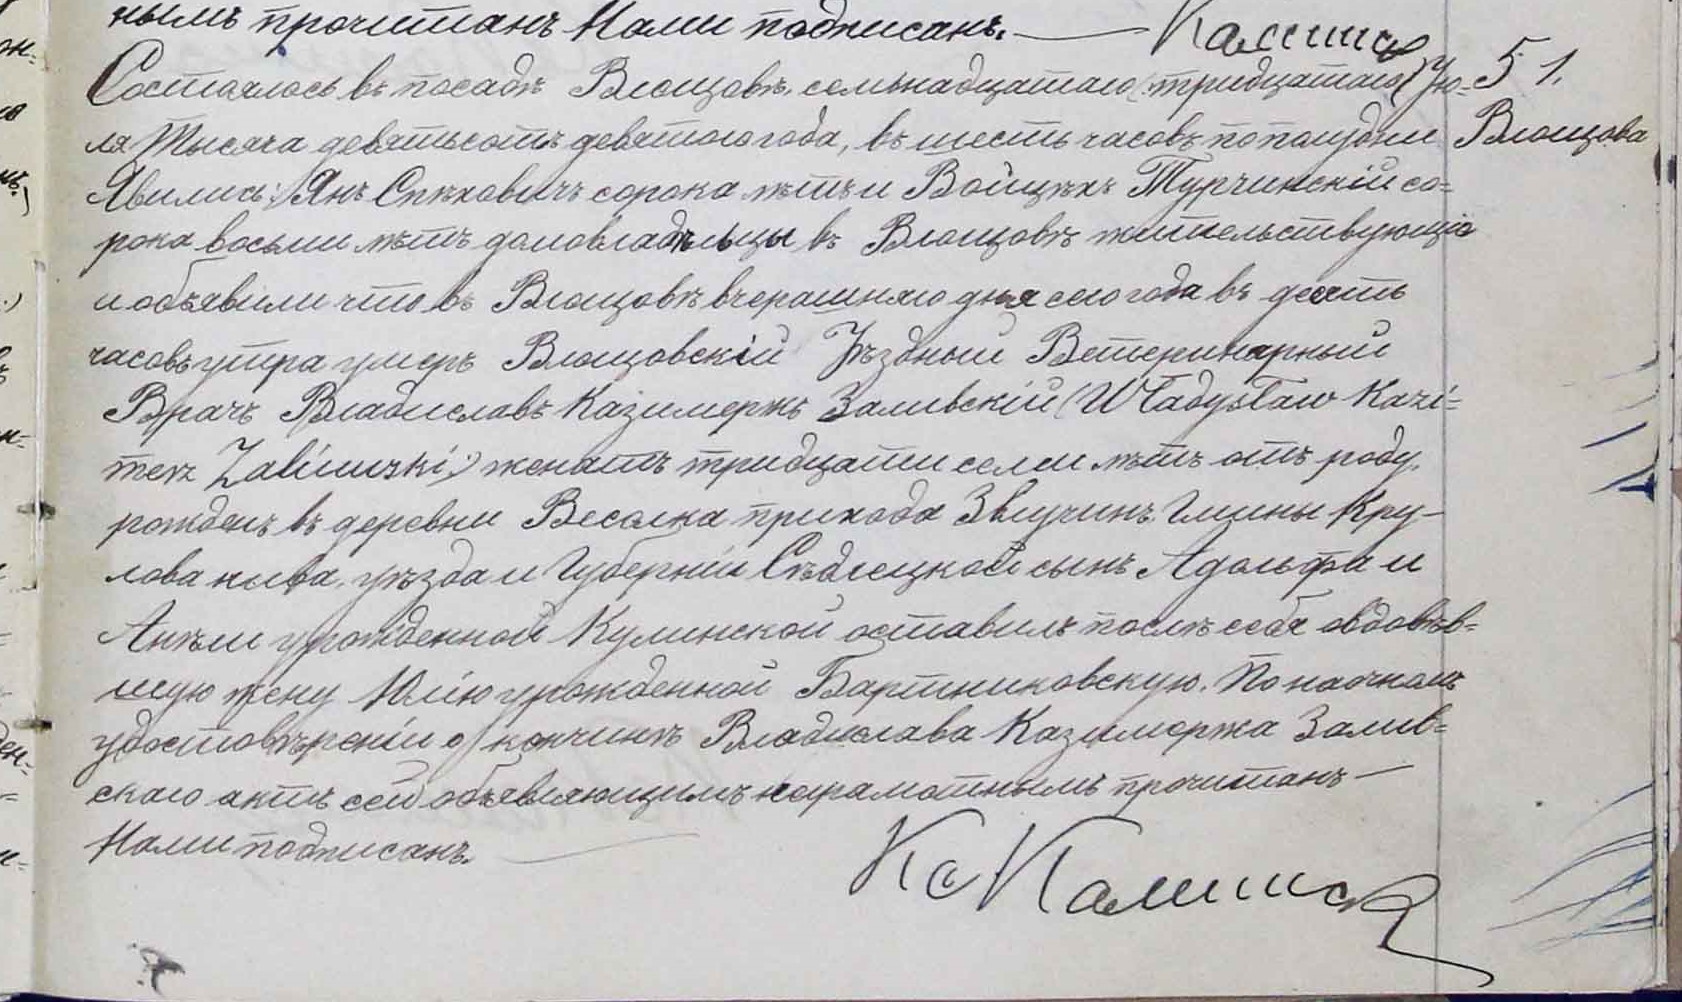 нымъ прочитанъ Нами подписанъ. — Калиш
Состоялось въ посадѣ Влощовѣ, семьнадцатаго (тридцатаго) Ію- 51.
ля Тысяча девятьсотъ девятого года, въ шесть часовъ по полудни Влощова
Явились: Янъ Спѣховичъ сорока лѣтъ и Войцѣхъ Турчинскій со=
рока восьми лѣтъ домовладѣльцы въ Влощовѣ жительствующіе
и объявили что въ Влощовѣ вчерашняго дня сего года въ десять
часовъ утра умеръ Влощовскій Уѣздный Ветеринарный
Врачъ Владиславъ Казимержъ Заливскій (Władysław Kazi=
merz Zaliwski,) женатъ тридцати семи лѣтъ отъ роду,
рожденъ въ деревни Весолка прихода Звучинъ Гмины Кру-
лова нива, уѣзда и Губерніи Сѣдлецкой сынъ Адольфа и
Анѣли урожденной Кулинской оставилъ послѣ себя овдовѣв=
шую жену Юлію урожденной Бартниковскую. По наочномъ
удостовѣреніи о кончинѣ Владислава Казимержа Залив=
скаго актъ сей объявляющимъ неграмотнымъ прочитанъ —
Нами подписанъ.
Кс Калиш